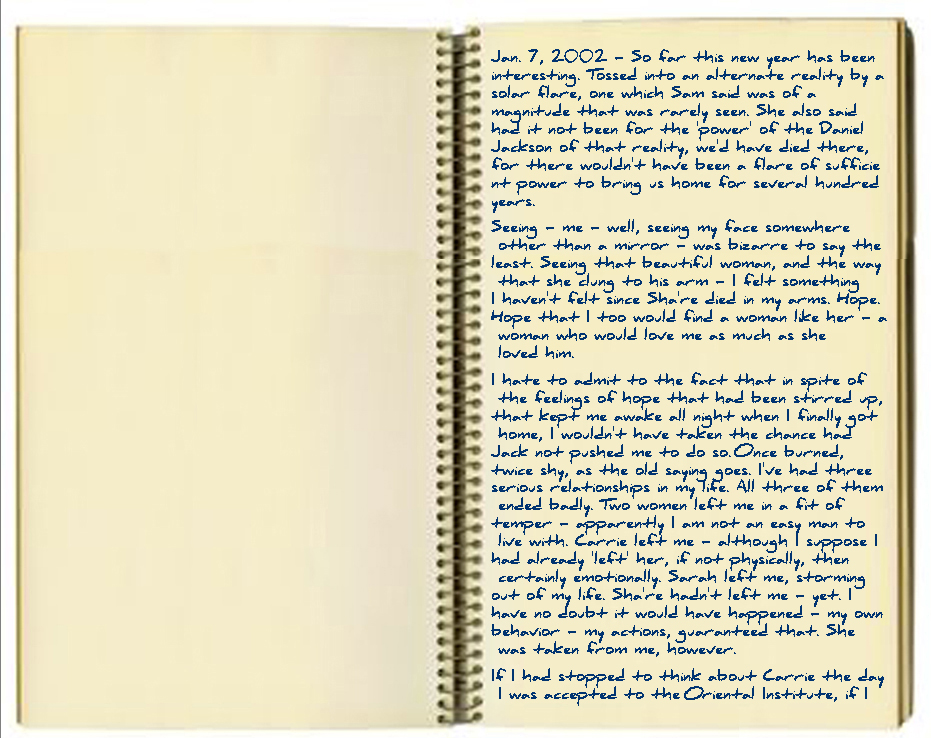 Jan. 7, 2002 - So far this new year has been
interesting. Tossed into an alternate reality by a
solar flare, one which Sam said was of a
magnitude that was rarely seen. She also said
had it not been for the 'power' of the Daniel
Jackson of that reality, we'd have died there,
for there wouldn't have been a flare of sufficie
nt power to bring us home for several hundred
years.
Seeing - me - well, seeing my face somewhere
other than a mirror - was bizarre to say the
least. Seeing that beautiful woman, and the way
that she clung to his arm - I felt something
I haven't felt since Sha're died in my arms. Hope.
Hope that I too would find a woman like her - a
woman who would love me as much as she
loved him.
I hate to admit to the fact that in spite of
the feelings of hope that had been stirred up,
that kept me awake all night when I finally got
home, I wouldn't have taken the chance had
Jack not pushed me to do so. Once burned,
twice shy, as the old saying goes. I've had three
serious relationships in my life. All three of them
ended badly. Two women left me in a fit of
temper - apparently I am not an easy man to
live with. Carrie left me - although I suppose I
had already 'left' her, if not physically, then
certainly emotionally. Sarah left me, storming
out of my life. Sha're hadn't left me - yet. I
have no doubt it would have happened - my own
behavior - my actions, guaranteed that. She
was taken from me, however.
If I had stopped to think about Carrie the day
I was accepted to the Oriental Institute, if I